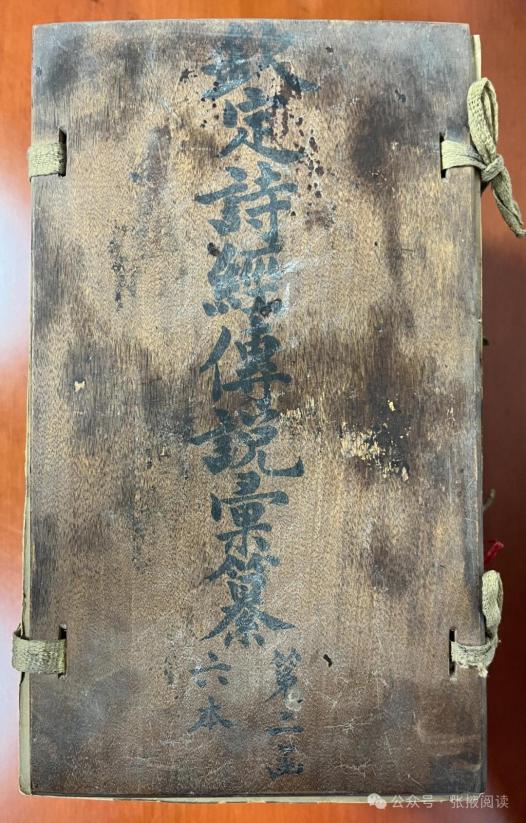 欽定詩經傳說彙纂
第二函
六本
公众号·张掖阅读